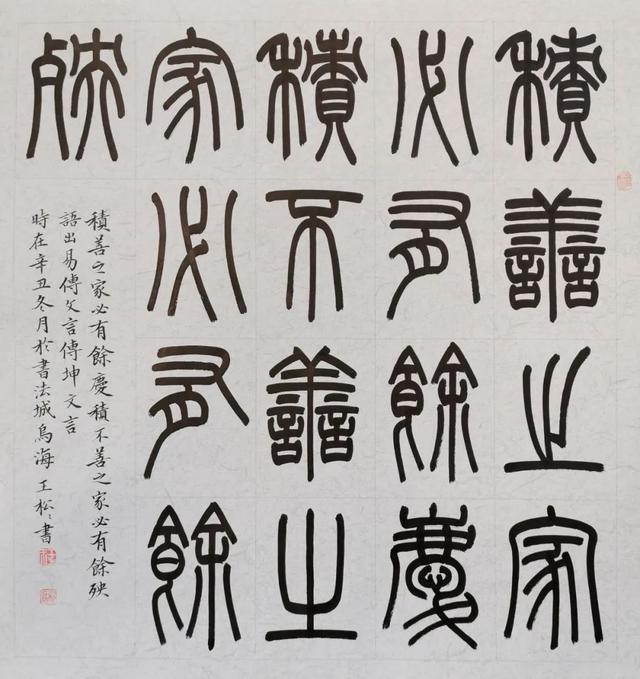 積善之家
必有餘慶
積不善之
家必有餘
殃
積善之家必有餘慶積不善之家必有餘殃
語出易傳文言傳坤文言
時在辛丑冬月於書法城烏海王松〻書